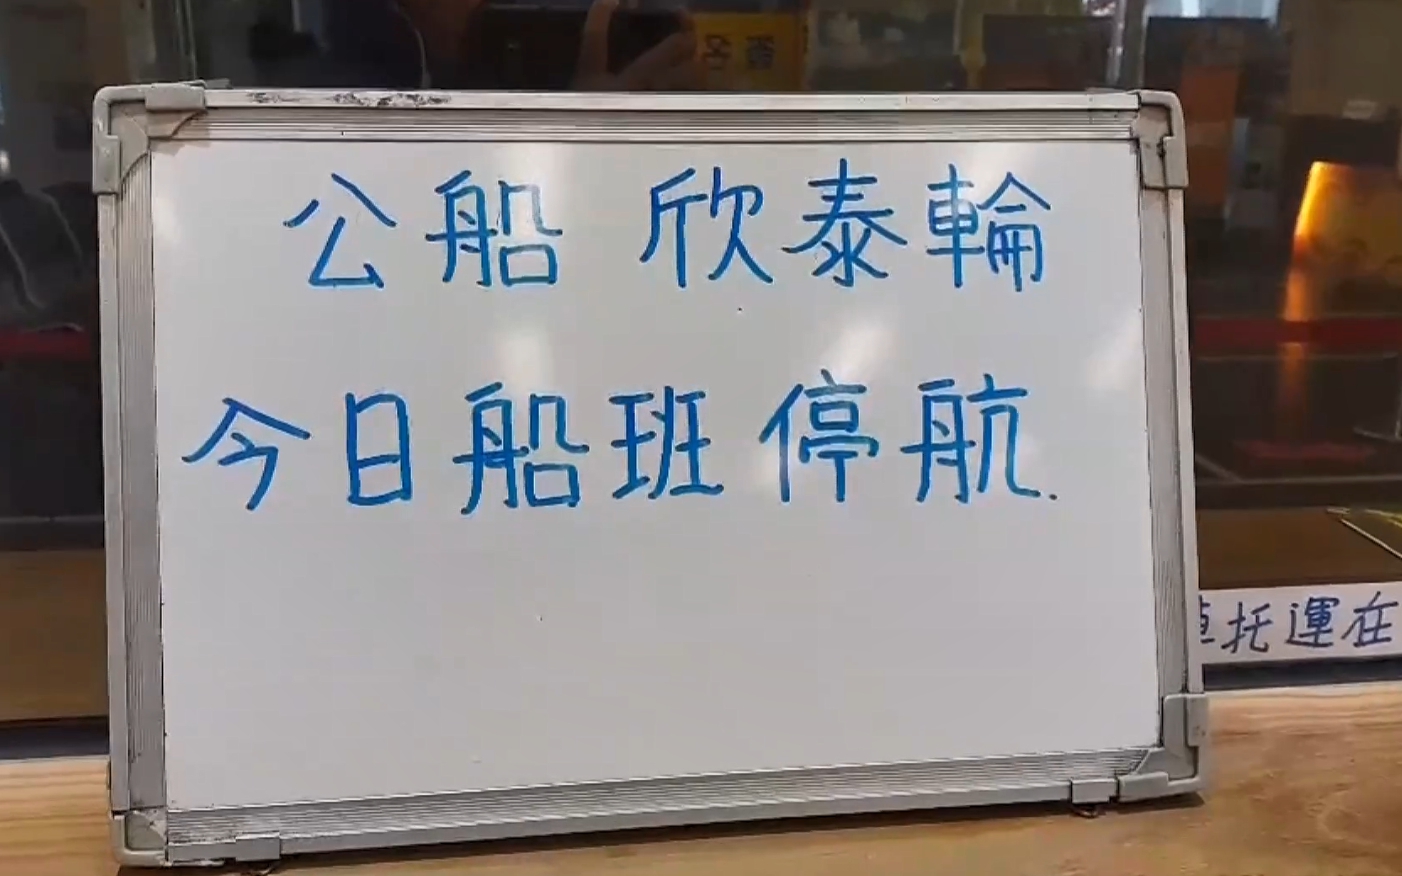 公船 欣泰輪
今日船班停航.
托運在